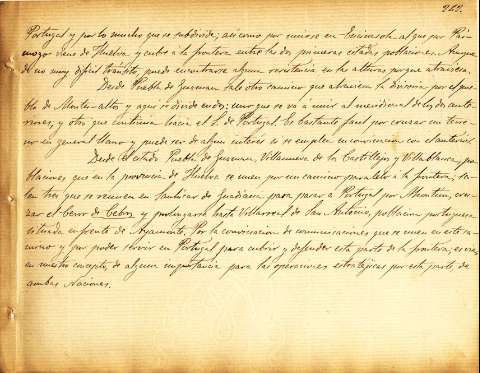 212.
Portugal y por lo mucho que se subdivide; asi como por unirse en Encinasola al que por Paï-
mogo viene de Huelva y cubre a la frontera entre las dos primeras citadas poblaciones. Aunque
de no muy dificil tránsito, puede encontrarse alguna resistencia en las alturas porque atraviesa.
Desde Puebla de Guzman sale otro camino que atraviesa la divisoria por el pue-
blo de Montes-altos y aqui se divide en dos; uno que se va á unir al meridional de los dos ante-
riores; y otro que continua hacia el S. de Portugal. Es bastante facil por cruzar un terre-
no en general llano y puede ser de algun interés si se emplea en convinacion con el anterior.
Desde el citado Puebla de Guzman, Villanueva de los Castillejos y Villablanca, po-
blaciones que en la provincia de Huelva se unen por un camino paralelo a la frontera, sa-
len tres que se reunen en Sanlúcar de Guadiana para pasar a Portugal por Alcoutim, cru-
zar el Cerro de Cebos y prolongarse hasta Villarreal de San Antonio, poblacion portuguesa
situada enfrente de Ayamonte. Por la convinacion de comunicaciones que se unen en este ca-
mino y por poder servir en Portugal para cubrir y defender esta parte de la frontera, es este,
en nuestro concepto, de alguna importancia para las operaciones estratégicas por esta parte, de
ambas Naciones.